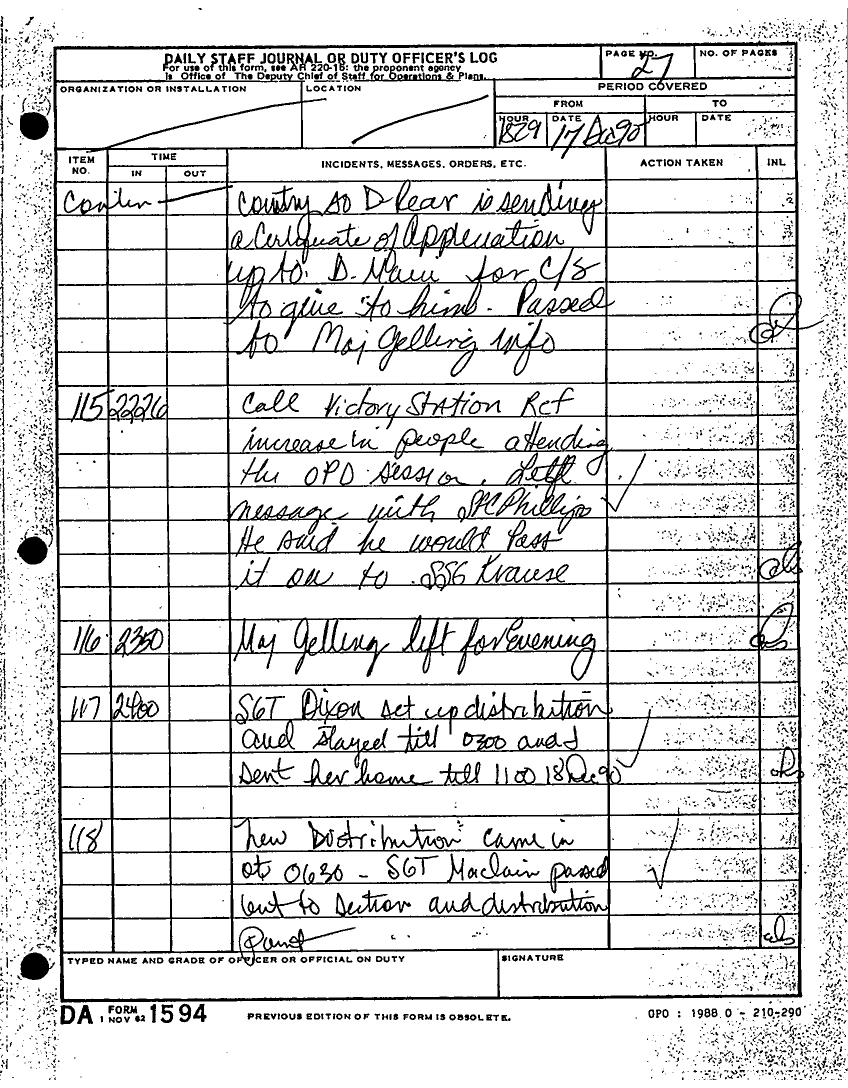 DAILY STAFF JOURNAL OR DUTY OFFICER'S LOG
For use of this form, see AR 220-15; the proponent agency
is Office of The Deputy Chief of Staff for Operations & Plans.
PAGE NO.
27
NO. OF PAGES
ORGANIZATION OR INSTALLATION
LOCATION
PERIOD COVERED
FROM
TO
HOUR
1829
DATE
17 Dec 90
HOUR
DATE
ITEM NO.
TIME
IN
OUT
INCIDENTS, MESSAGES, ORDERS, ETC.
ACTION TAKEN
INL
Contin
country so D Rear is sending
a Certificate of Appreciation
up to D. Main for C/S
to give to him. Passed
to Maj Gelling info
115 2226 Call Victory Station Ref
increase in people attending
the OPD session. Left
message with Phillips
He said he would Pass
it on to SSG Krause
116 2350 Maj Gelling left for Evening
117 2400 SGT Dixon set up distribution
and stayed till 0300 and I
sent her home till 1100 18 Dec 90
118 New Distribution came in
at 0630 - SGT Maclain passed
out to section and distribution
TYPED NAME AND GRADE OF OFFICER OR OFFICIAL ON DUTY
SIGNATURE
DA FORM 1 NOV 62 1594
PREVIOUS EDITION OF THIS FORM IS OBSOLETE.
GPO : 1988 0 - 210-290